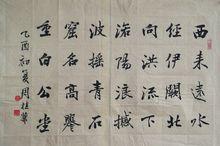 西来悠遠
經伊闕北
向洪流下
洛陽浪撼
波搖青石
窟名高譽
重白公堂
乙酉初夏周